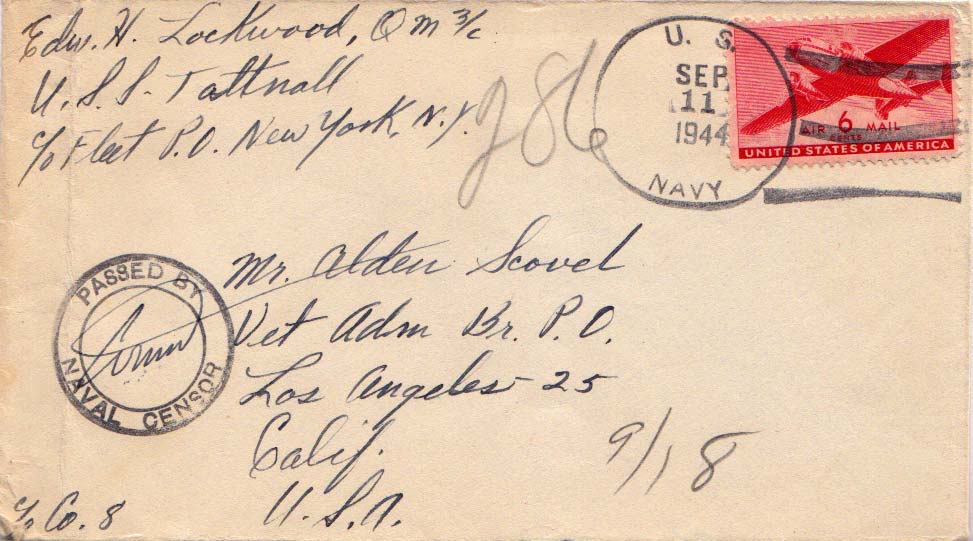 Edw. H. Lockwood, QM 3/c
U.S.S. Tattnall
c/o Fleet P.O. New York, N.Y.
U. S.
SEP
11
1944
NAVY
AIR 6 MAIL
CENTS
UNITED STATES OF AMERICA
286
PASSED BY
NAVAL CENSOR
Mr. Alden Scovel
Vet Adm Br. P.O.
Los Angeles 25
Calif.
U.S.A.
9/18
c/o Co. 8